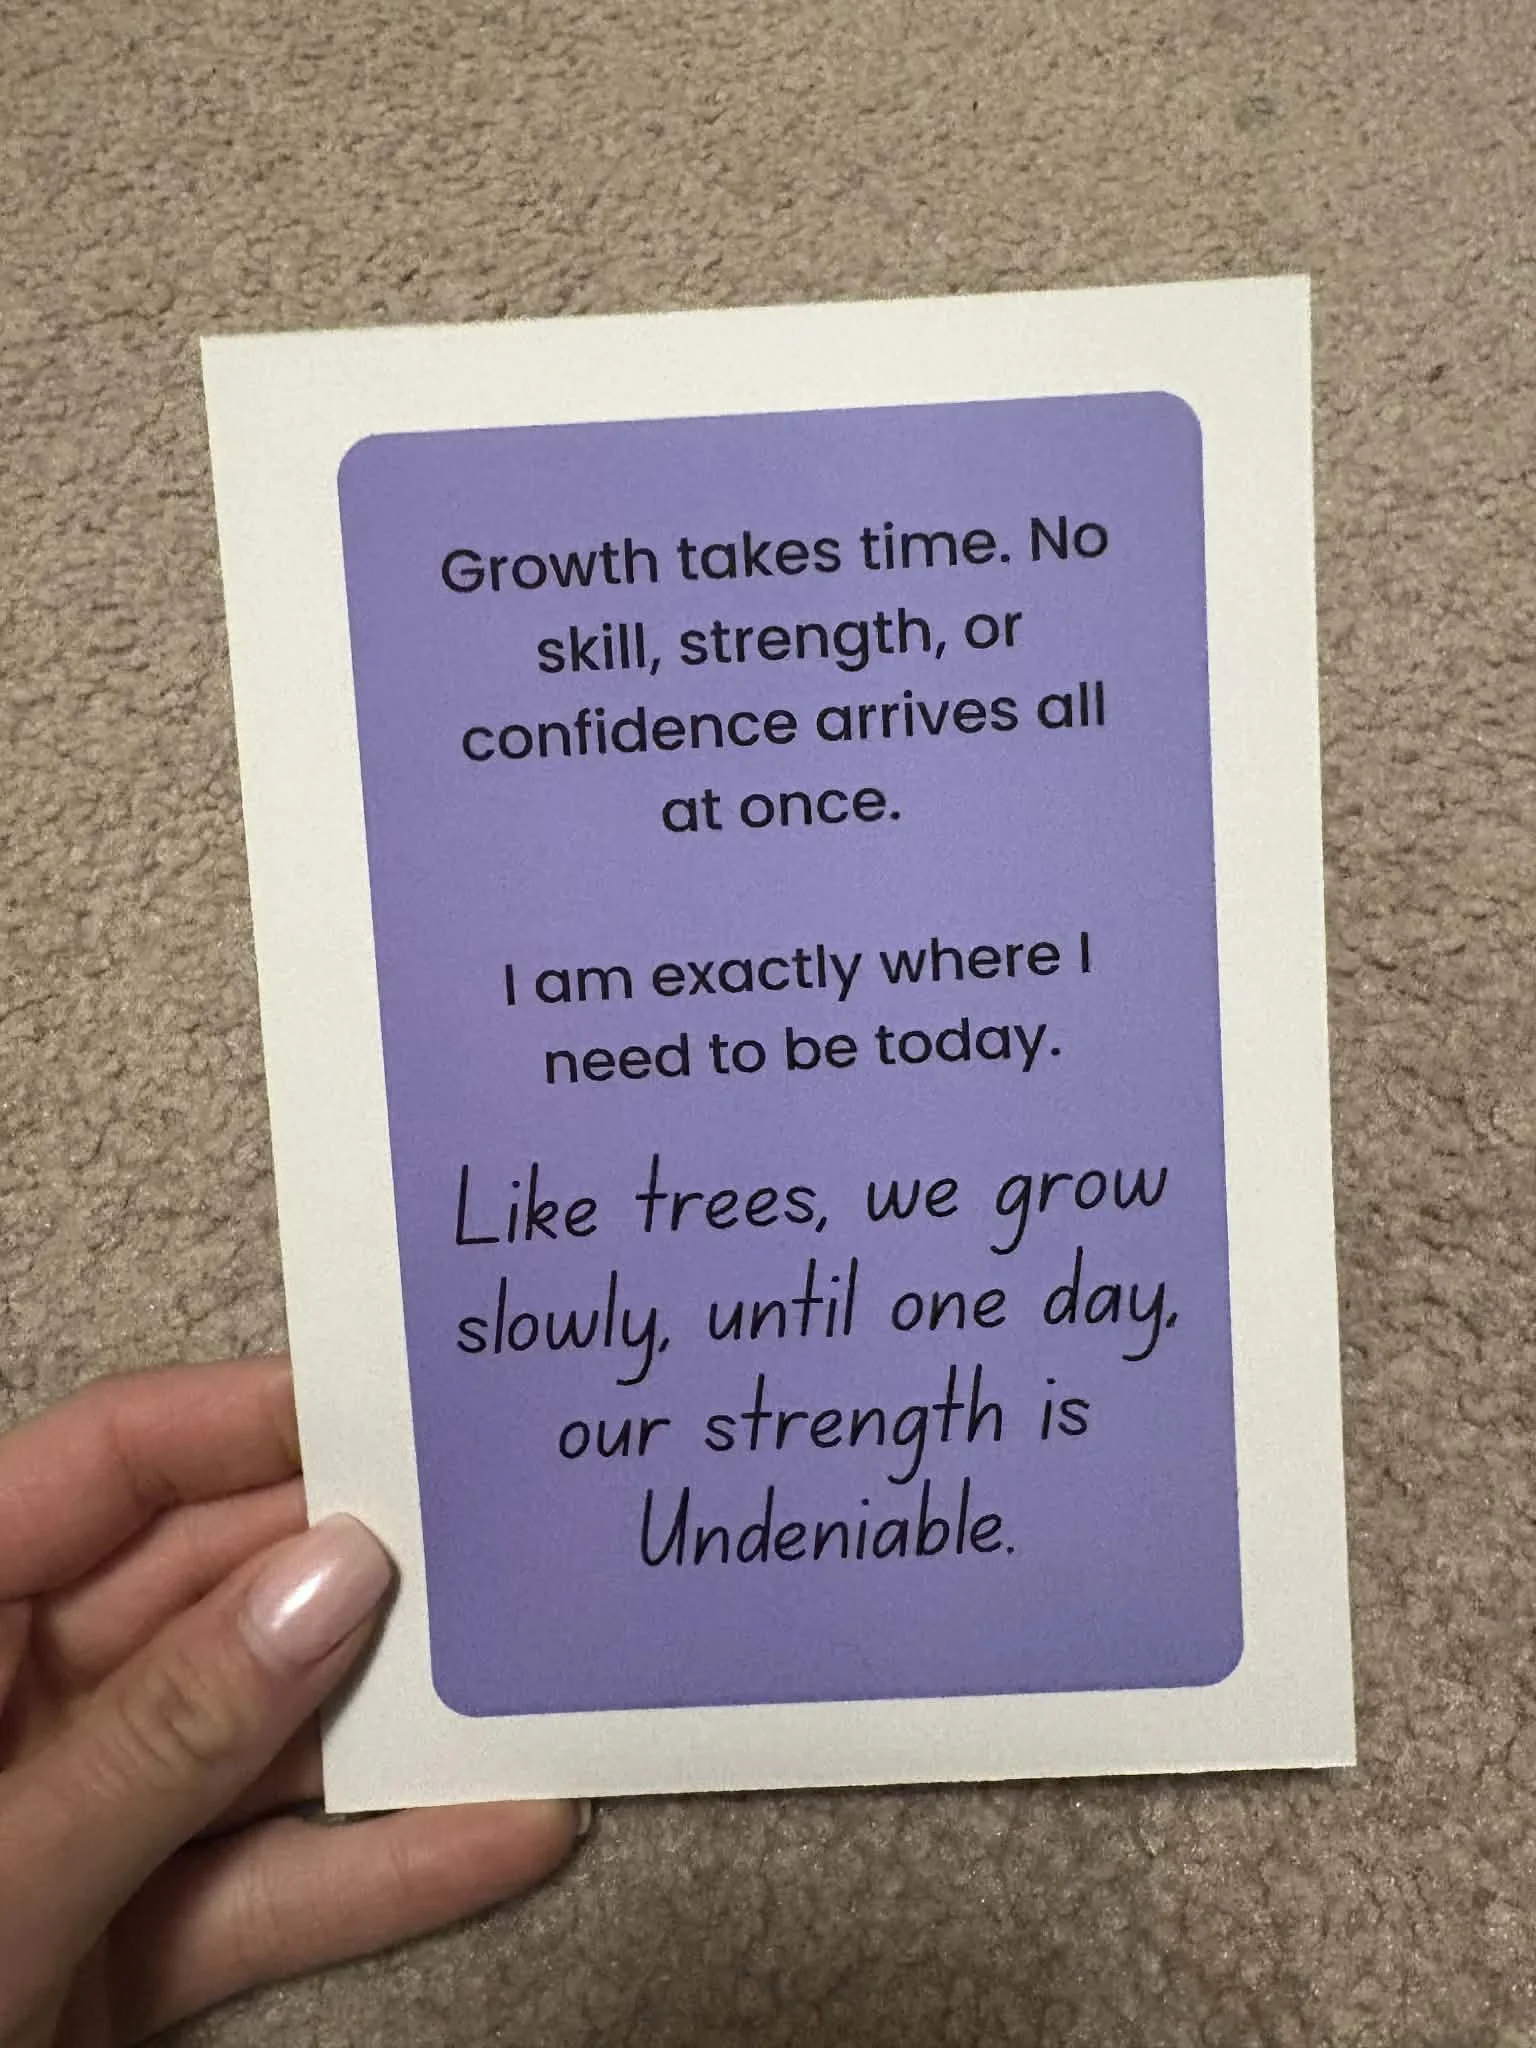 Growth takes time. No
skill, strength, or
confidence arrives all
at once.
I am exactly where I
need to be today.
Like trees, we grow
slowly, until one day,
our strength is
Undeniable.